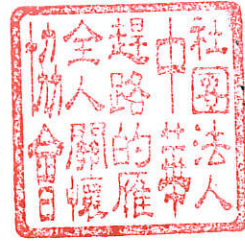 社團法人
中華
趕路的雁
全人關懷
協會